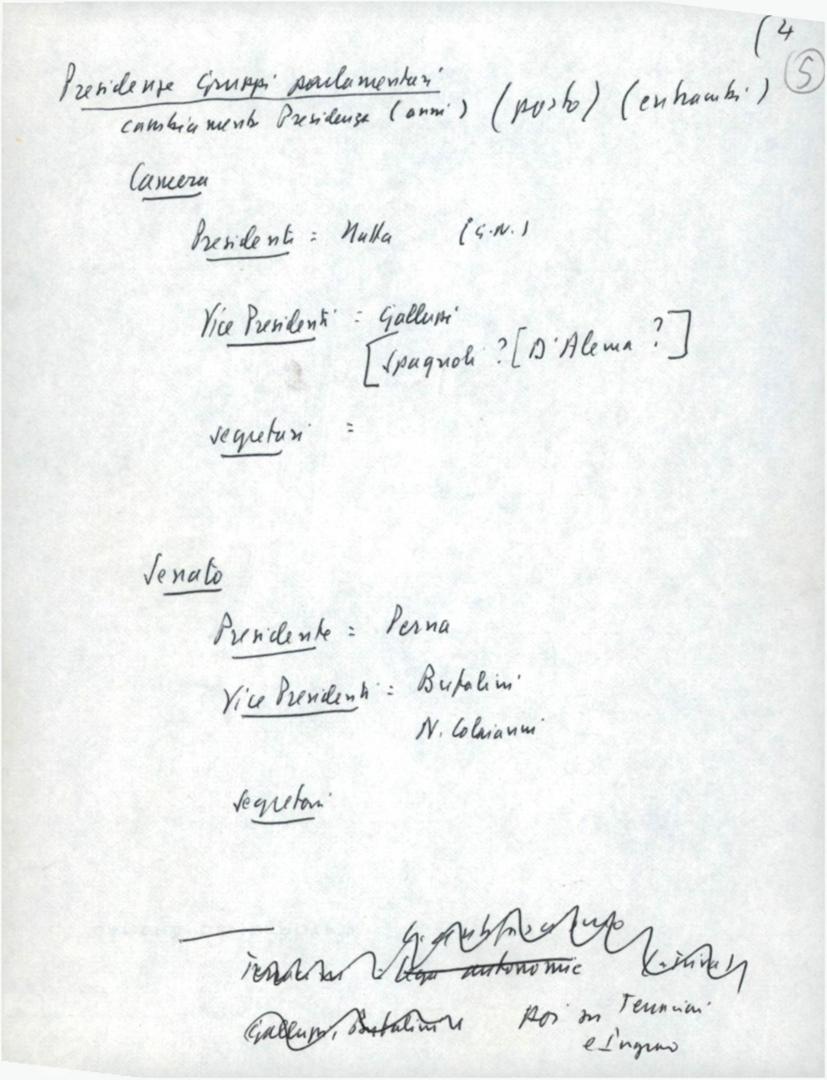 (4
5
Presidenze Gruppi parlamentari
cambiamento Presidenza (anni) (posto) (entrambi)
Camera
Presidenti = Natta (G.N.)
Vice Presidenti = Galluzzi
[Spagnoli ? [D'Alema ?]
segretari =
Senato
Presidente = Perna
Vice Presidenti = Bufalini
N. Colajanni
segretari
Lega autonomie
Galluzzi, Bufalini
Poi su Terracini
e Ingrao